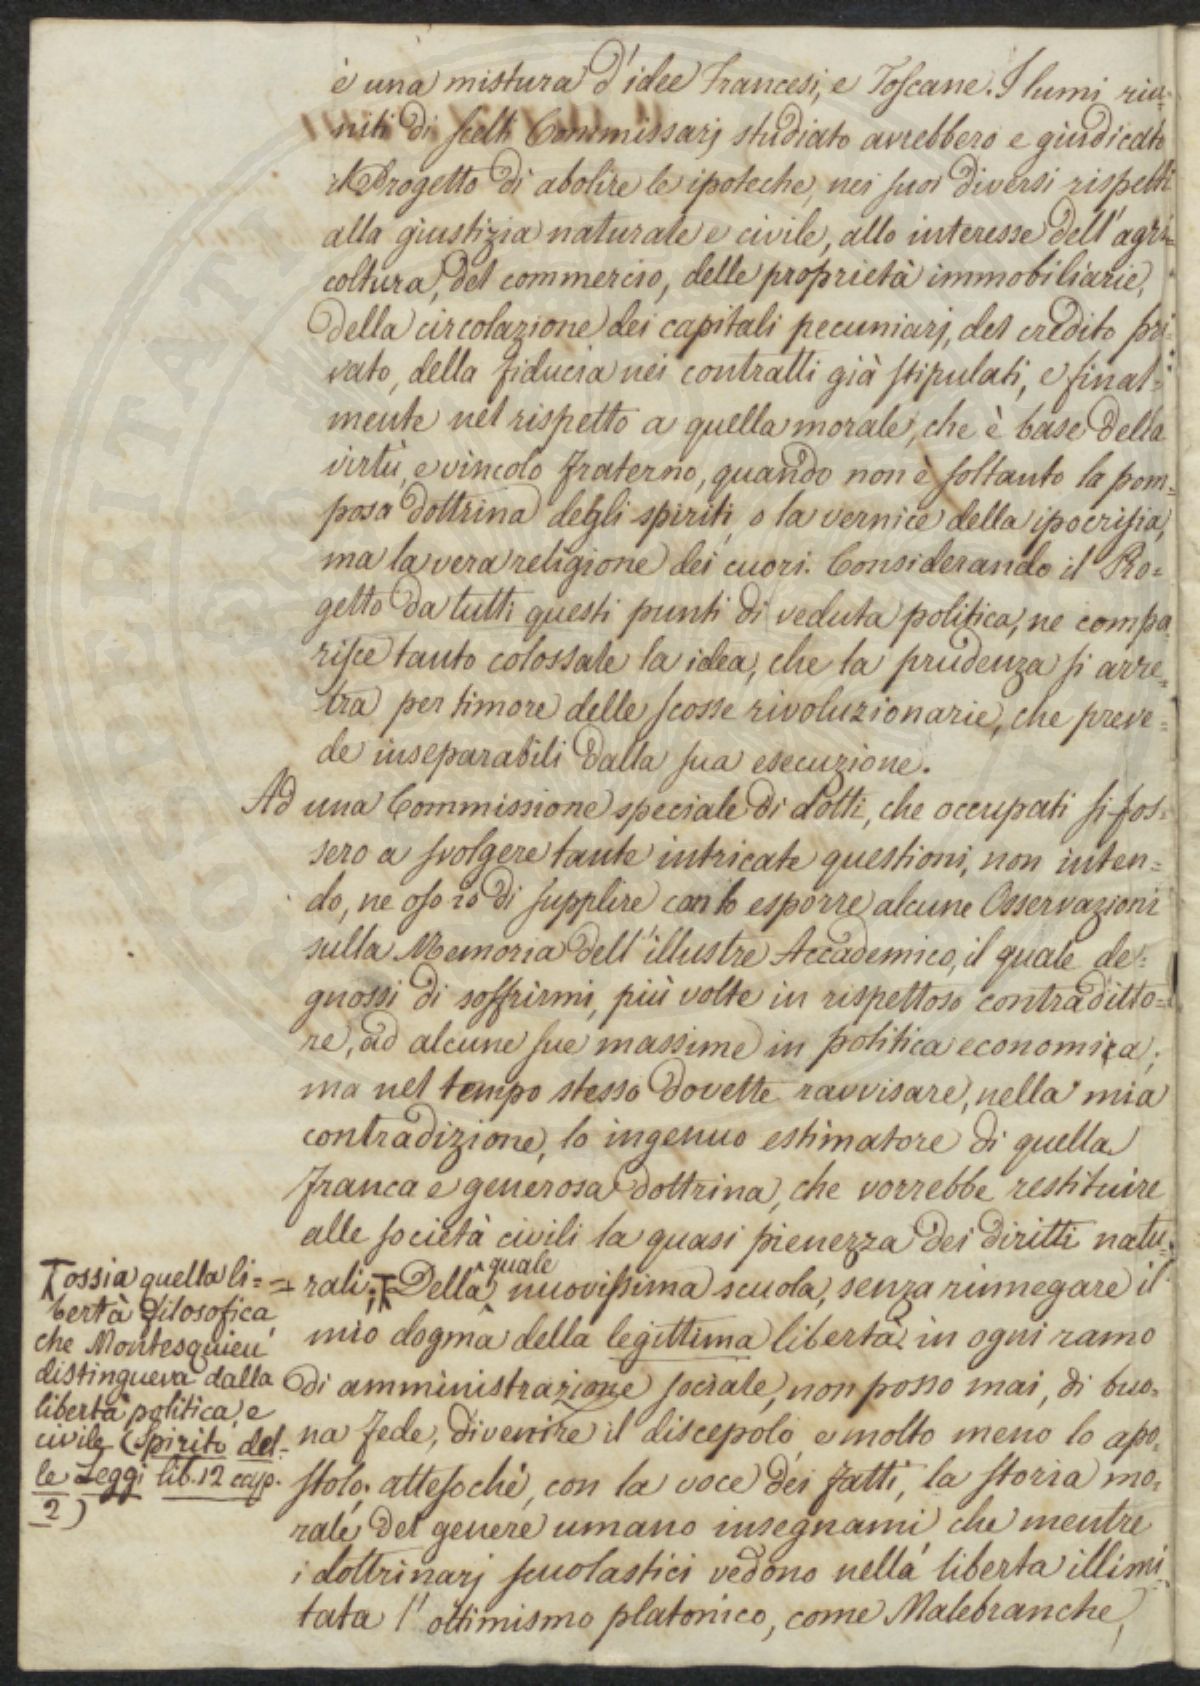 è una mistura d'idee Francesi, e Toscane. I lumi riu-
niti di scelti Commissarj studiato avrebbero e giudicato
il Progetto di abolire le ipoteche, nei suoi diversi rispetti
alla giustizia naturale e civile, allo interesse dell'agri-
coltura, del commercio, delle proprietà immobiliarie,
della circolazione dei capitali pecuniarj, del credito pri-
vato, della fiducia nei contratti già stipulati, e final-
mente nel rispetto a quella morale, che è base della
virtù, e vincolo fraterno, quando non è soltanto la pom-
posa dottrina degli spiriti, o la vernice della ipocrisia,
ma la vera religione dei cuori. Considerando il Pro-
getto da tutti questi punti di veduta politica, ne compa-
risce tanto colossale la idea, che la prudenza si arre-
tra per timore delle scosse rivoluzionarie, che preve-
de inseparabili dalla sua esecuzione.
Ad una Commissione speciale di dotti, che occupati si fos-
sero a svolgere tante intricate questioni, non inten-
do, ne oso io di supplire con lo esporre alcune Osservazioni
sulla Memoria dell'illustre Accademico, il quale de-
gnossi di soffrirmi, più volte in rispettoso contraditto-
re, ad alcune sue massime in politica economica;
ma nel tempo stesso dovette ravvisare, nella mia
contradizione, lo ingenuo estimatore di quella
franca e generosa dottrina, che vorrebbe restituire
alle società civili la quasi pienezza dei diritti natu-
rali; Della quale nuovissima scuola, senza rinnegare il
mio dogma della legittima libertà in ogni ramo
di amministrazione sociale, non posso mai, di buo-
na fede, divenire il discepolo, e molto meno lo apo-
stolo; attesochè, con la voce dei fatti, la storia mo-
rale del genere umano insegnami che mentre
i dottrinarj scuolastici vedono nella liberta illimi-
tata l'ottimismo platonico, come Malebranche,
ossia quella li-
bertà filosofica
che Montesquieu
distingueva dalla
libertà politica, e
civile (Spirito del-
le Leggi lib. 12 cap.
2)